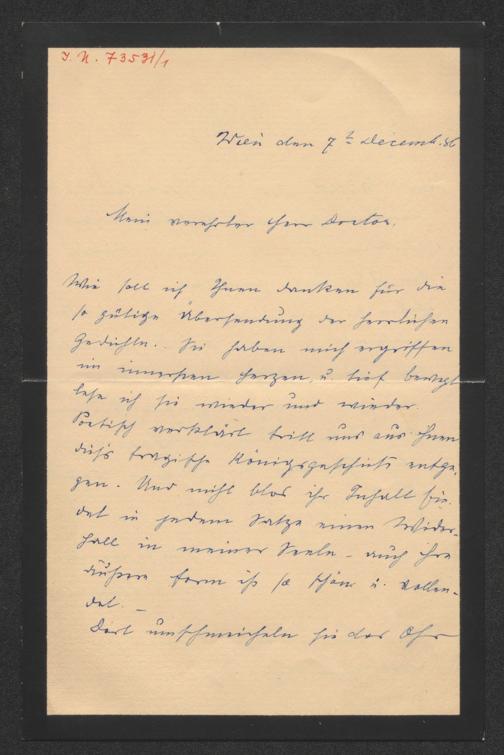 I. N. 73531/1
Wien den 7t Decemb. 86
Mein verehrter Herr Doctor.
Wie soll ich Ihnen danken für die
so gütige Übersendung der herrlichen
Gedichte. Sie haben mich ergriffen
im innersten Herzen, u. tief bewegt
lese ich sie wieder und wieder.
Poetisch verklärt tritt uns aus Ihnen
dieß tragische Königsgeschick entge-
gen. Und nicht blos ihr Inhalt fin-
det in jedem Satze einen Wider-
hall in meiner Seele – auch ihre
äußere Form ist so schön u. vollen-
det. –
Dort umschmeicheln sie das Ohr